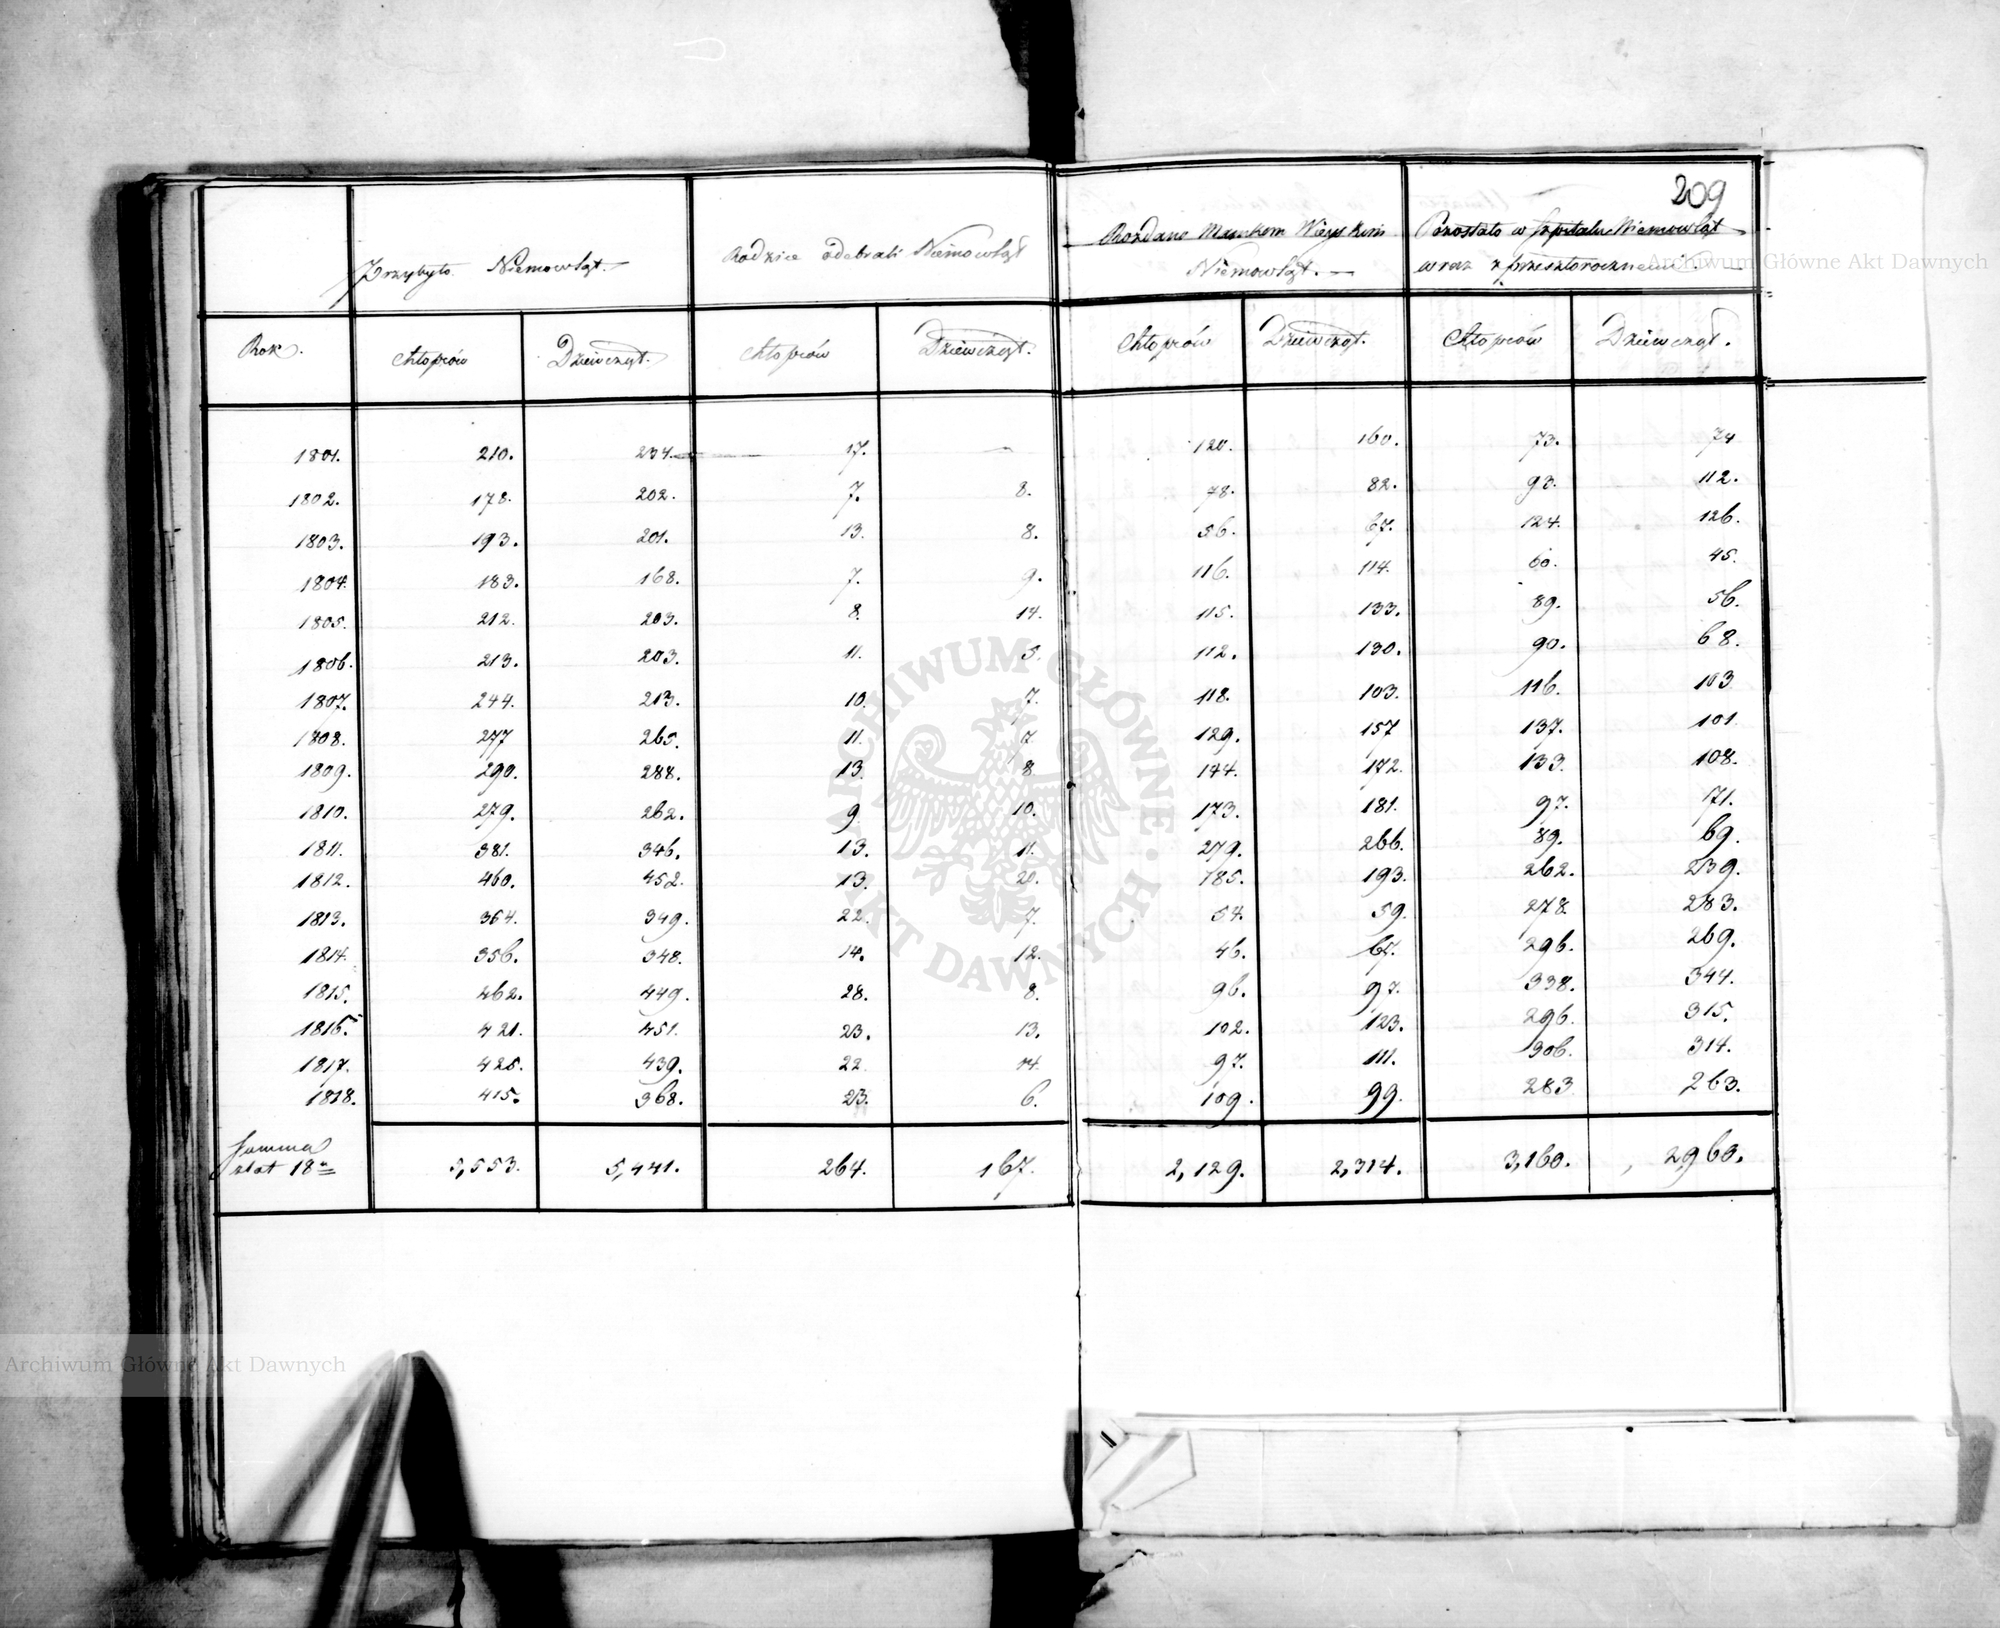 209
Przybyło Niemowląt.
Rodzice odebrali Niemowląt
Rozdano Mamkom Wieyskim
Niemowląt.
Pozostało w Szpitalu Niemowląt
wraz z przeszłorocznemi
Rok. Chłopców Dziewcząt. Chłopców Dziewcząt. Chłopców Dziewcząt. Chłopców Dziewcząt.
1801. 210. 234. 17. — 120. 160. 73. 74
1802. 178. 202. 7. 8. 78. 82. 93. 112.
1803. 193. 201. 13. 8. 56. 67. 124. 126.
1804. 183. 168. 7. 9. 116. 114. 60. 45.
1805. 212. 203. 8. 14. 115. 133. 89. 56.
1806. 213. 203. 11. 5. 112. 130. 90. 68.
1807. 244. 213. 10. 7. 118. 103. 116. 103
1808. 277 265. 11. 7 129. 157 137. 101.
1809. 290. 288. 13. 8 144. 172. 133. 108.
1810. 279. 262. 9 10. 173. 181. 97. 71.
1811. 381. 346. 13. 11. 279. 266. 89. 69.
1812. 460. 452. 13. 20. 185. 193. 262. 239.
1813. 364. 349. 22. 7. 54. 59. 278. 283.
1814. 356. 348. 14. 12. 46. 67. 296. 269.
1815. 462. 449. 28. 8. 96. 97. 338. 344.
1816. 421. 451. 23. 13. 102. 123. 296. 315.
1817. 425. 439. 22. 14. 97. 111. 306. 314.
1818. 415. 368. 23. 6. 109. 99. 283 263.
Summa
z lat 18 5,553. 5,441. 264. 167. 2,129. 2,314. 3,160. 2960.
ARCHIWUM GŁÓWNE AKT DAWNYCH
Archiwum Główne Akt Dawnych
Archiwum Główne Akt Dawnych